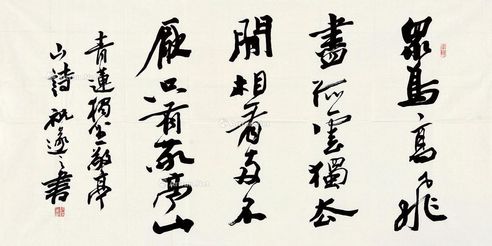 眾鳥高飛
盡孤雲獨去
閒相看兩不
厭只有敬亭山
青蓮獨坐敬亭
山詩 祝遂之書